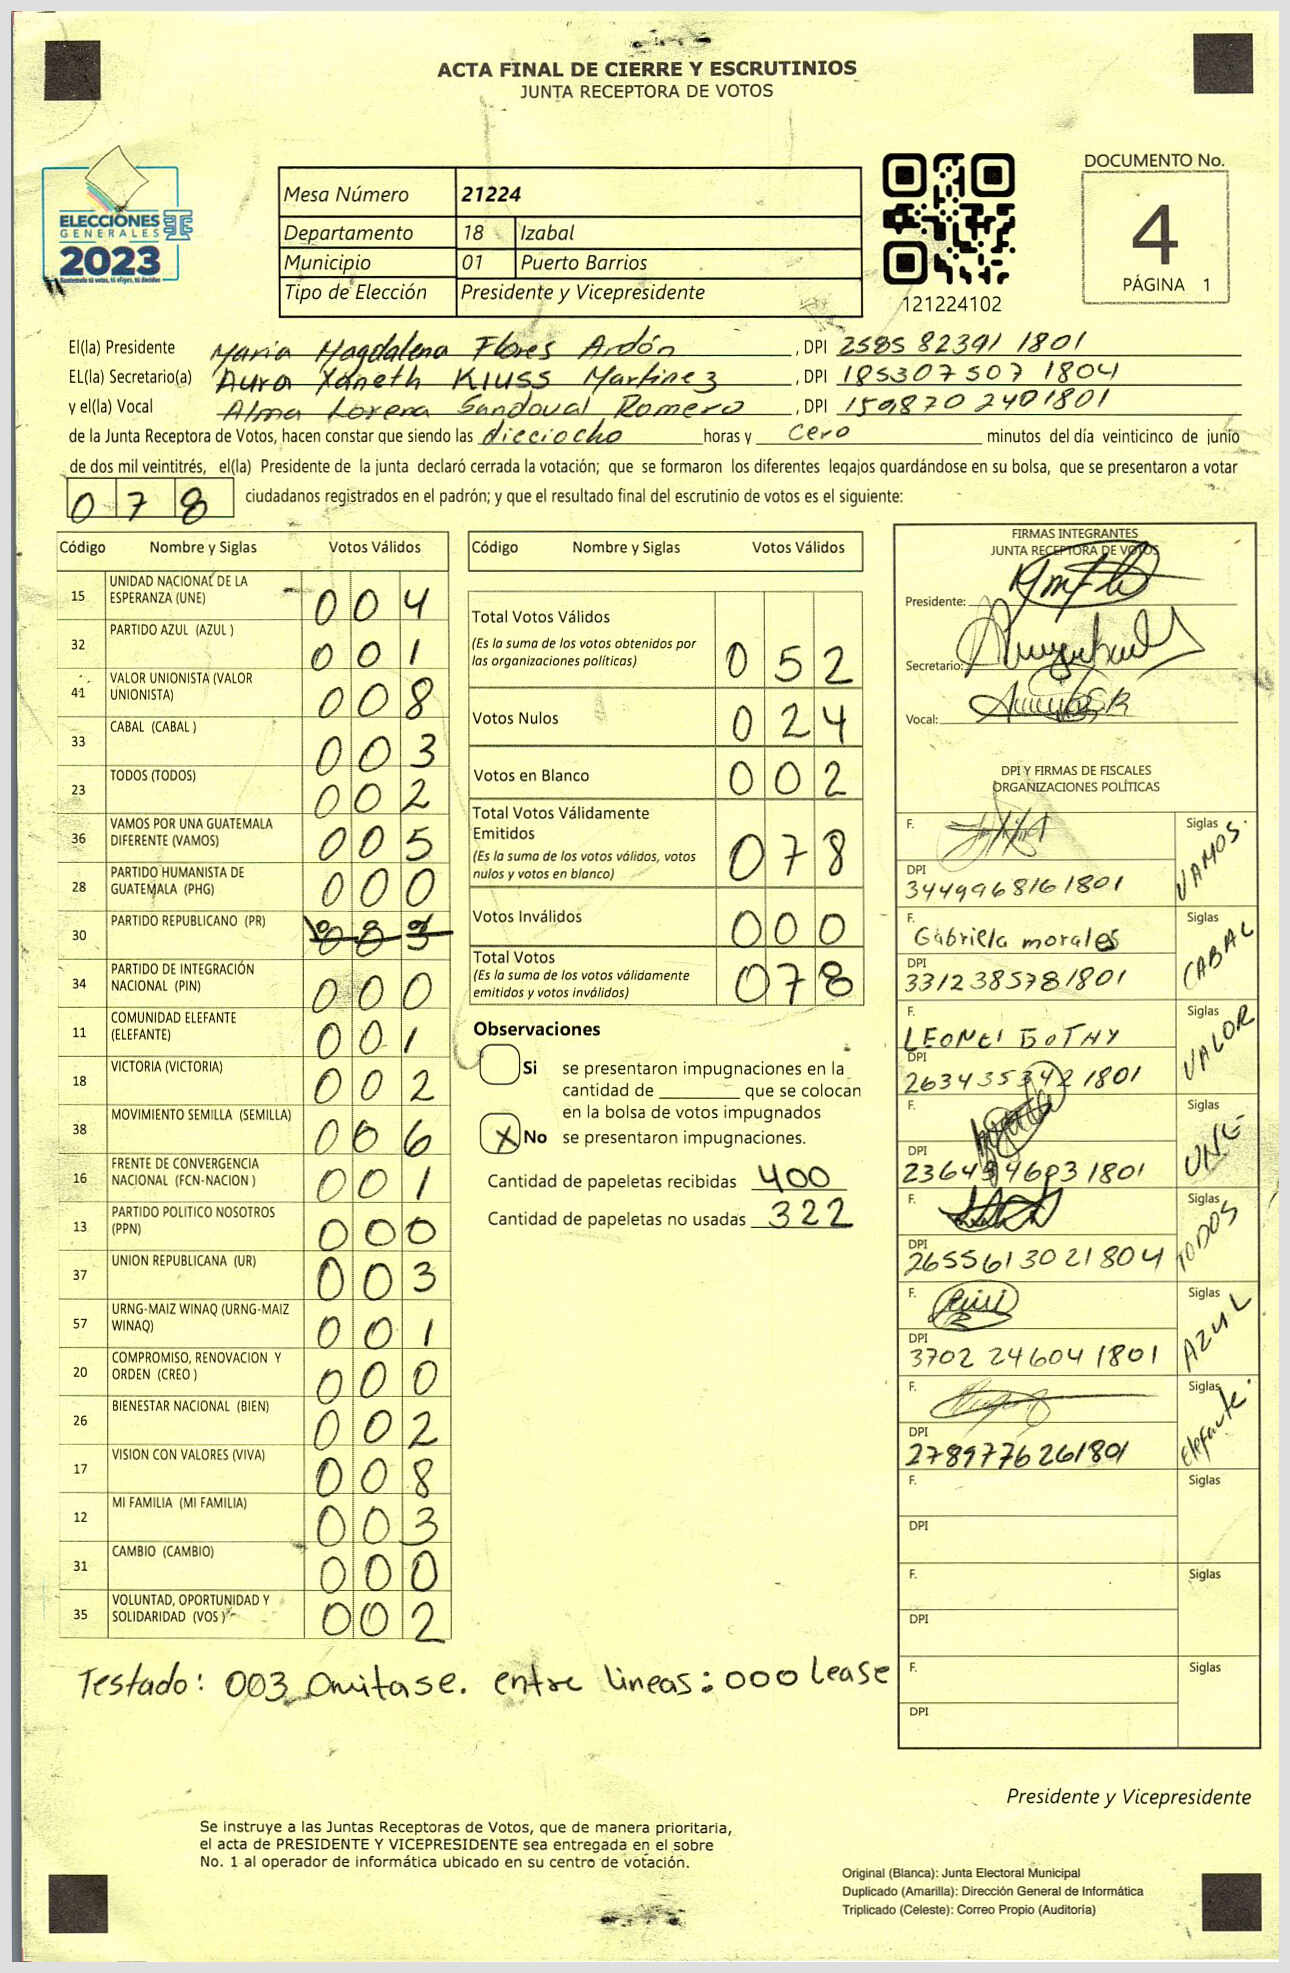 ACTA FINAL DE CIERRE Y ESCRUTINIOS
JUNTA RECEPTORA DE VOTOS
ELECCIONES
GENERALES
2023
Mesa Número 21224
Departamento 18 Izabal
Municipio 01 Puerto Barrios
Tipo de Elección Presidente y Vicepresidente
121224102
DOCUMENTO No.
4
PÁGINA 1
El(la) Presidente Maria Magdalena Flores Ardón, DPI 2585 82391 1801
EL(la) Secretario(a) Aura Yaneth Kluss Martinez, DPI 185307507 1804
y el(la) Vocal Alma Lorena Sandoval Romero, DPI 159870 2401801
de la Junta Receptora de Votos, hacen constar que siendo las dieciocho horas y cero minutos del día veinticinco de junio
de dos mil veintitrés, el(la) Presidente de la junta declaró cerrada la votación; que se formaron los diferentes legajos guardándose en su bolsa, que se presentaron a votar
078 ciudadanos registrados en el padrón; y que el resultado final del escrutinio de votos es el siguiente:
Código Nombre y Siglas Votos Válidos
15 UNIDAD NACIONAL DE LA ESPERANZA (UNE) 004
32 PARTIDO AZUL (AZUL ) 001
41 VALOR UNIONISTA (VALOR UNIONISTA) 008
33 CABAL (CABAL ) 003
23 TODOS (TODOS) 002
36 VAMOS POR UNA GUATEMALA DIFERENTE (VAMOS) 005
28 PARTIDO HUMANISTA DE GUATEMALA (PHG) 000
30 PARTIDO REPUBLICANO (PR) 003 000
34 PARTIDO DE INTEGRACIÓN NACIONAL (PIN) 000
11 COMUNIDAD ELEFANTE (ELEFANTE) 001
18 VICTORIA (VICTORIA) 002
38 MOVIMIENTO SEMILLA (SEMILLA) 006
16 FRENTE DE CONVERGENCIA NACIONAL (FCN-NACION ) 001
13 PARTIDO POLITICO NOSOTROS (PPN) 000
37 UNION REPUBLICANA (UR) 003
57 URNG-MAIZ WINAQ (URNG-MAIZ WINAQ) 001
20 COMPROMISO, RENOVACION Y ORDEN (CREO ) 000
26 BIENESTAR NACIONAL (BIEN) 002
17 VISION CON VALORES (VIVA) 008
12 MI FAMILIA (MI FAMILIA) 003
31 CAMBIO (CAMBIO) 000
35 VOLUNTAD, OPORTUNIDAD Y SOLIDARIDAD (VOS ) 002
Testado: 003 Omitase. entre lineas: 000 Lease
Código Nombre y Siglas Votos Válidos
Total Votos Válidos 052
(Es la suma de los votos obtenidos por
las organizaciones políticas)
Votos Nulos 024
Votos en Blanco 002
Total Votos Válidamente
Emitidos 078
(Es la suma de los votos válidos, votos
nulos y votos en blanco)
Votos Inválidos 000
Total Votos 078
(Es la suma de los votos válidamente
emitidos y votos inválidos)
Observaciones
Si se presentaron impugnaciones en la
cantidad de ________ que se colocan
en la bolsa de votos impugnados
X No se presentaron impugnaciones.
Cantidad de papeletas recibidas 400
Cantidad de papeletas no usadas 322
FIRMAS INTEGRANTES
JUNTA RECEPTORA DE VOTOS
Presidente:
Secretario:
Vocal:
DPI Y FIRMAS DE FISCALES
ORGANIZACIONES POLÍTICAS
F. Siglas VAMOS.
DPI 3449968161801
F. Gabriella morales Siglas CABAL
DPI 3312385781801
F. LEONEL Siglas VALOR
DPI 2634353421801
F. Siglas UNE
DPI 1801
F. Siglas TODOS
DPI 2655613021804
F. Siglas AZUL
DPI 3702 24604 1801
F. Siglas Elefante.
DPI 2789776261801
F. Siglas
DPI
F. Siglas
DPI
F. Siglas
DPI
Presidente y Vicepresidente
Se instruye a las Juntas Receptoras de Votos, que de manera prioritaria,
el acta de PRESIDENTE Y VICEPRESIDENTE sea entregada en el sobre
No. 1 al operador de informática ubicado en su centro de votación.
Original (Blanca): Junta Electoral Municipal
Duplicado (Amarilla): Dirección General de Informática
Triplicado (Celeste): Correo Propio (Auditoría)